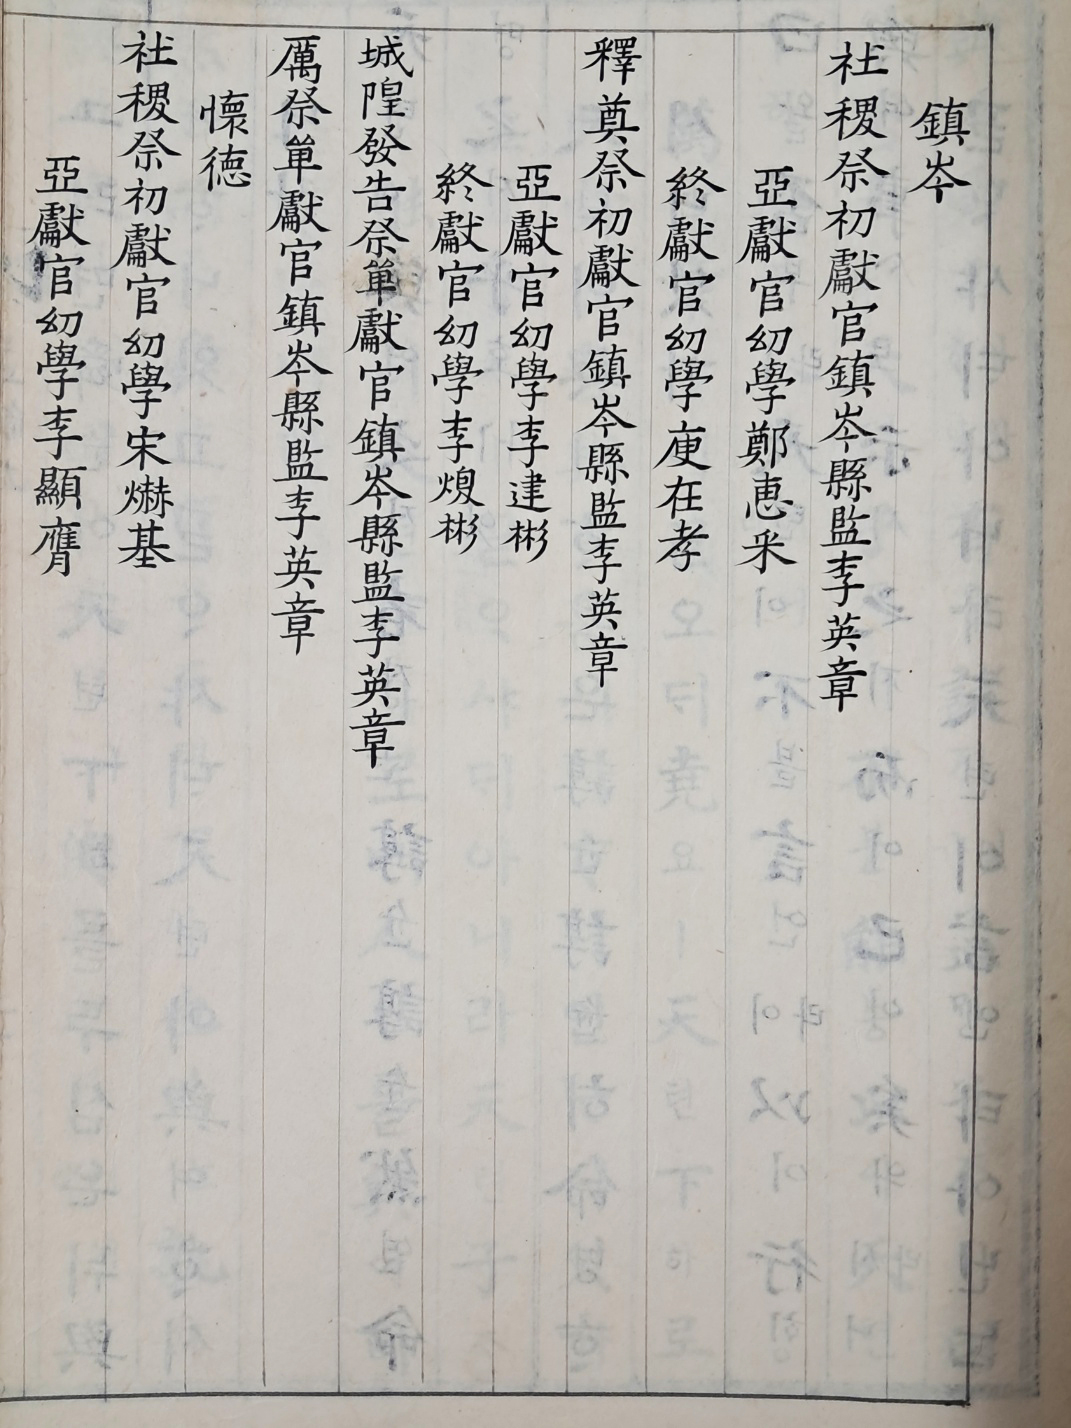 鎭岑
社稷祭初獻官鎭岑縣監李英章
亞獻官幼學鄭惠采
終獻官幼學庾在孝
釋奠祭初獻官鎭岑縣監李英章
亞獻官幼學李建彬
終獻官幼學李熲彬
城隍發告祭單獻官鎭岑縣監李英章
厲祭單獻官鎭岑縣監李英章
懷德
社稷祭初獻官幼學宋爀基
亞獻官幼學李顯膺